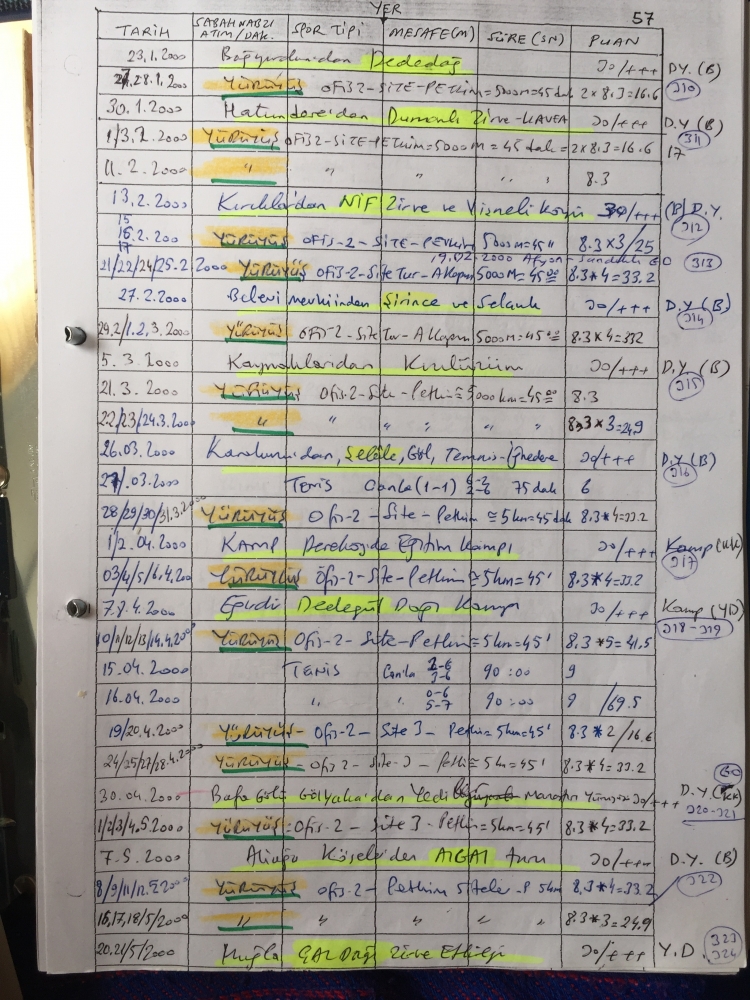 YER
57
TARİH SABAH NABZI ATIM/DAK. SPOR TİPİ MESAFE(M) SÜRE (SN) PUAN
23.1.2000 Dededağ 30/+++ D.Y. (B)
28.1.2000 YÜRÜYÜŞ OFİS2-SİTE-PETKİM=5000M=45 dak 2x8.3=16.6 310
30.1.2000 Zirve-KAVEA 30/+++ D.Y (B)
YÜRÜYÜŞ OFİS2-SİTE-PETKİM=5000M=45 dak=2x8.3=16.6 311
17
11.2.2000 " " " " " 8.3
13.2.2000 NİF Zirve ve Vişneli köyü /+++ (B) D.Y.
312
15
16.2.2000 YÜRÜYÜŞ OFİS-2-SİTE-PETKİM 5000M=45" 8.3x3/25
17
19.02.2000 Afyon-Sandıklı 313
21/22/24/25.2.2000 YÜRÜYÜŞ OFİS-2-Site Tur-A Kapısı 5000M=45 8.3*4=33.2
27.2.2000 Belevi mevkiinden Şirince ve Selçuk 30/+++ D.Y (B)
314
29.2/1.2.3.2000 YÜRÜYÜŞ OFİS-2-Site Tur-A Kapısı 5000M=45 8.3x4=332
5.3.2000 Kaynaklardan 30/+++ D.Y. (B)
315
21.3.2000 YÜRÜYÜŞ Ofis-2-Site-Petkim≅5000km=45 8.3
22/23/24.3.2000 " " " " " 8.3x3=24.9
26.03.2000 Şelale, Göl, 30/+++ D.Y.(B)
316
27/.03.2000 TENİS Canla (1-1) 75 dak 6
28/29/30/31.3.2000 YÜRÜYÜŞ Ofis-2-Site-Petkim≅5km=45dak 8.3*4=33.2
1/2.04.2000 KAMP Dereköyde Eğitim Kampı 30/+++ Kamp
317
03/4/5/6.4.200 YÜRÜYÜŞ Ofis-2-Site-Petkim≅5km=45' 8.3*4=33.2
7.8.4.2000 Dedegül Dağı Kampı 30/+++ Kamp (YD)
318-319
10/11/12/13/14.4.2000 YÜRÜYÜŞ Ofis-2-Site-Petkim≅5km=45' 8.3*5=41.5
15.04.2000 TENİS Canla 2-6 3-6 90:00 9
16.04.2000 " " 0-6 5-7 90:00 9 /69.5
19/20.4.2000 YÜRÜYÜŞ-Ofis-2-Site 3-Petkim=5km=45' 8.3*2/16.6
24/25/27/28.4.2000 YÜRÜYÜŞ-Ofis-2-Site-3-Petkim≅5km=45' 8.3*4=33.2
30.04.2000 Bafa Gölü Gölyaka'dan Yedi 30/+++ D.Y.
320-321
1/2/3/4.5.2000 YÜRÜYÜŞ-Ofis-2-Site 3-Petkim=5km=45' 8.3*4=33.2
7.5.2000 Aliağa Köseler'den AIGAI turu 30/+++ D.Y. (B)
322
8/9/11/12.5.2000 YÜRÜYÜŞ Ofis-2-Petkim Siteler-P 5km 8.3*4=33.2
16,17,18/5/2000 " " " " " 8.3*3=24.9
20.21/5/2000 Muğla Dağı Zirve Etkinliği 30/+++ Y.D. 323
324